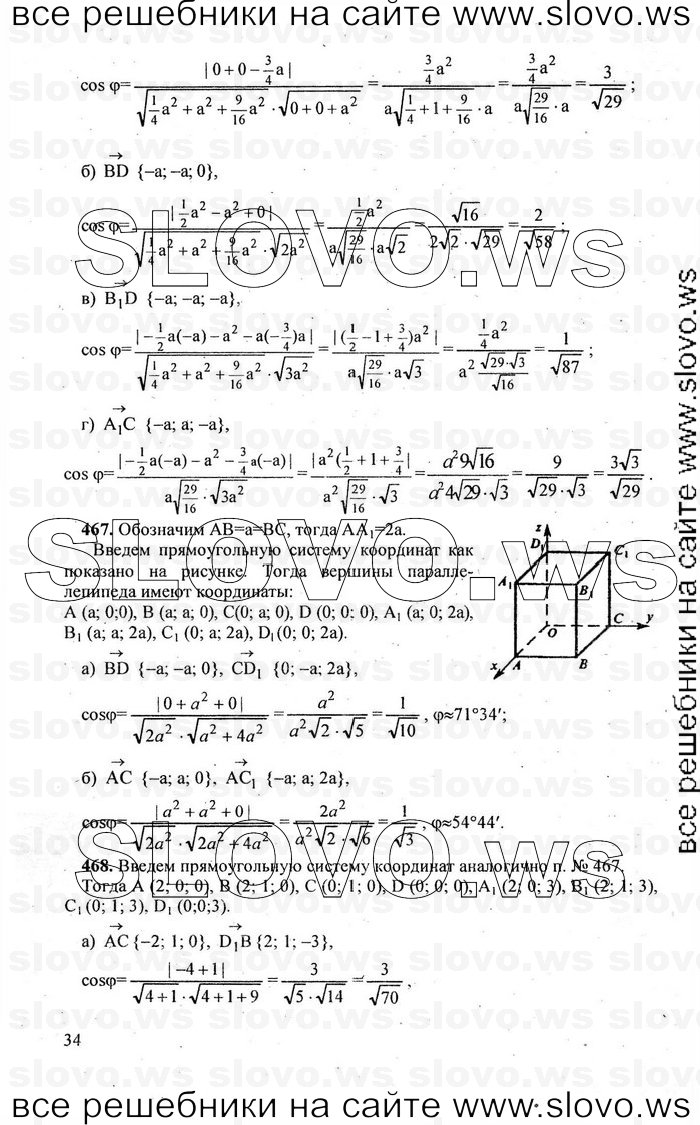 все решебники на сайте www.slovo.ws
cos φ= |0+0−3/4a| / (√(1/4a²+a²+9/16a²)·√(0+0+a²)) = 3/4a² / (a√(1/4+1+9/16)·a) = 3/4a² / (a√(29/16)·a) = 3/√29 ;
б) BD→ {−a; −a; 0},
cos φ= |1/2a²−a²+0| / (√(1/4a²+a²+9/16a²)·√(2a²)) = 1/2a² / (a√(29/16)·a√2) = √16 / (2√2·√29) = 2/√58 ;
в) B₁D→ {−a; −a; −a},
cos φ= |−1/2a(−a)−a²−a(−3/4)a| / (√(1/4a²+a²+9/16a²)·√(3a²)) = |(1/2−1+3/4)a²| / (a√(29/16)·a√3) = 1/4a² / (a² √29·√3/√16) = 1/√87 ;
г) A₁C→ {−a; a; −a},
cos φ= |−1/2a(−a)−a²−3/4a(−a)| / (a√(29/16)·√(3a²)) = |a²(1/2+1+3/4| / (a²√(29/16)·√3) = a²9√16 / (a²4√29·√3) = 9 / (√29·√3) = 3√3/√29 .
467. Обозначим AB=a=BC, тогда AA₁=2a.
Введем прямоугольную систему координат как
показано на рисунке. Тогда вершины паралле-
лепипеда имеют координаты:
A (a; 0;0), B (a; a; 0), C(0; a; 0), D (0; 0; 0), A₁ (a; 0; 2a),
B₁ (a; a; 2a), C₁ (0; a; 2a), D₁(0; 0; 2a).
z
D₁ C₁
A₁ B₁
O C y
x A B
а) BD→ {−a; −a; 0}, CD₁→ {0; −a; 2a},
cosφ= |0+a²+0| / (√(2a²)·√(a²+4a²)) = a² / (a²√2·√5) = 1/√10 , φ≈71°34′;
б) AC→ {−a; a; 0}, AC₁→ {−a; a; 2a},
cosφ= |a²+a²+0| / (√(2a²)·√(2a²+4a²)) = 2a² / (a²√2·√6) = 1/√3 , φ≈54°44′.
468. Введем прямоугольную систему координат аналогично п. № 467.
Тогда A (2; 0; 0), B (2; 1; 0), C (0; 1; 0), D (0; 0; 0), A₁ (2; 0; 3), B₁ (2; 1; 3),
C₁ (0; 1; 3), D₁ (0;0;3).
а) AC→ {−2; 1; 0}, D₁B→ {2; 1; −3},
cosφ= |−4+1| / (√(4+1)·√(4+1+9)) = 3 / (√5·√14) = 3/√70 ,
34
все решебники на сайте www.slovo.ws
все решебники на сайте www.slovo.ws
SLOVO.ws
SLOVO.ws
SLOVO.ws